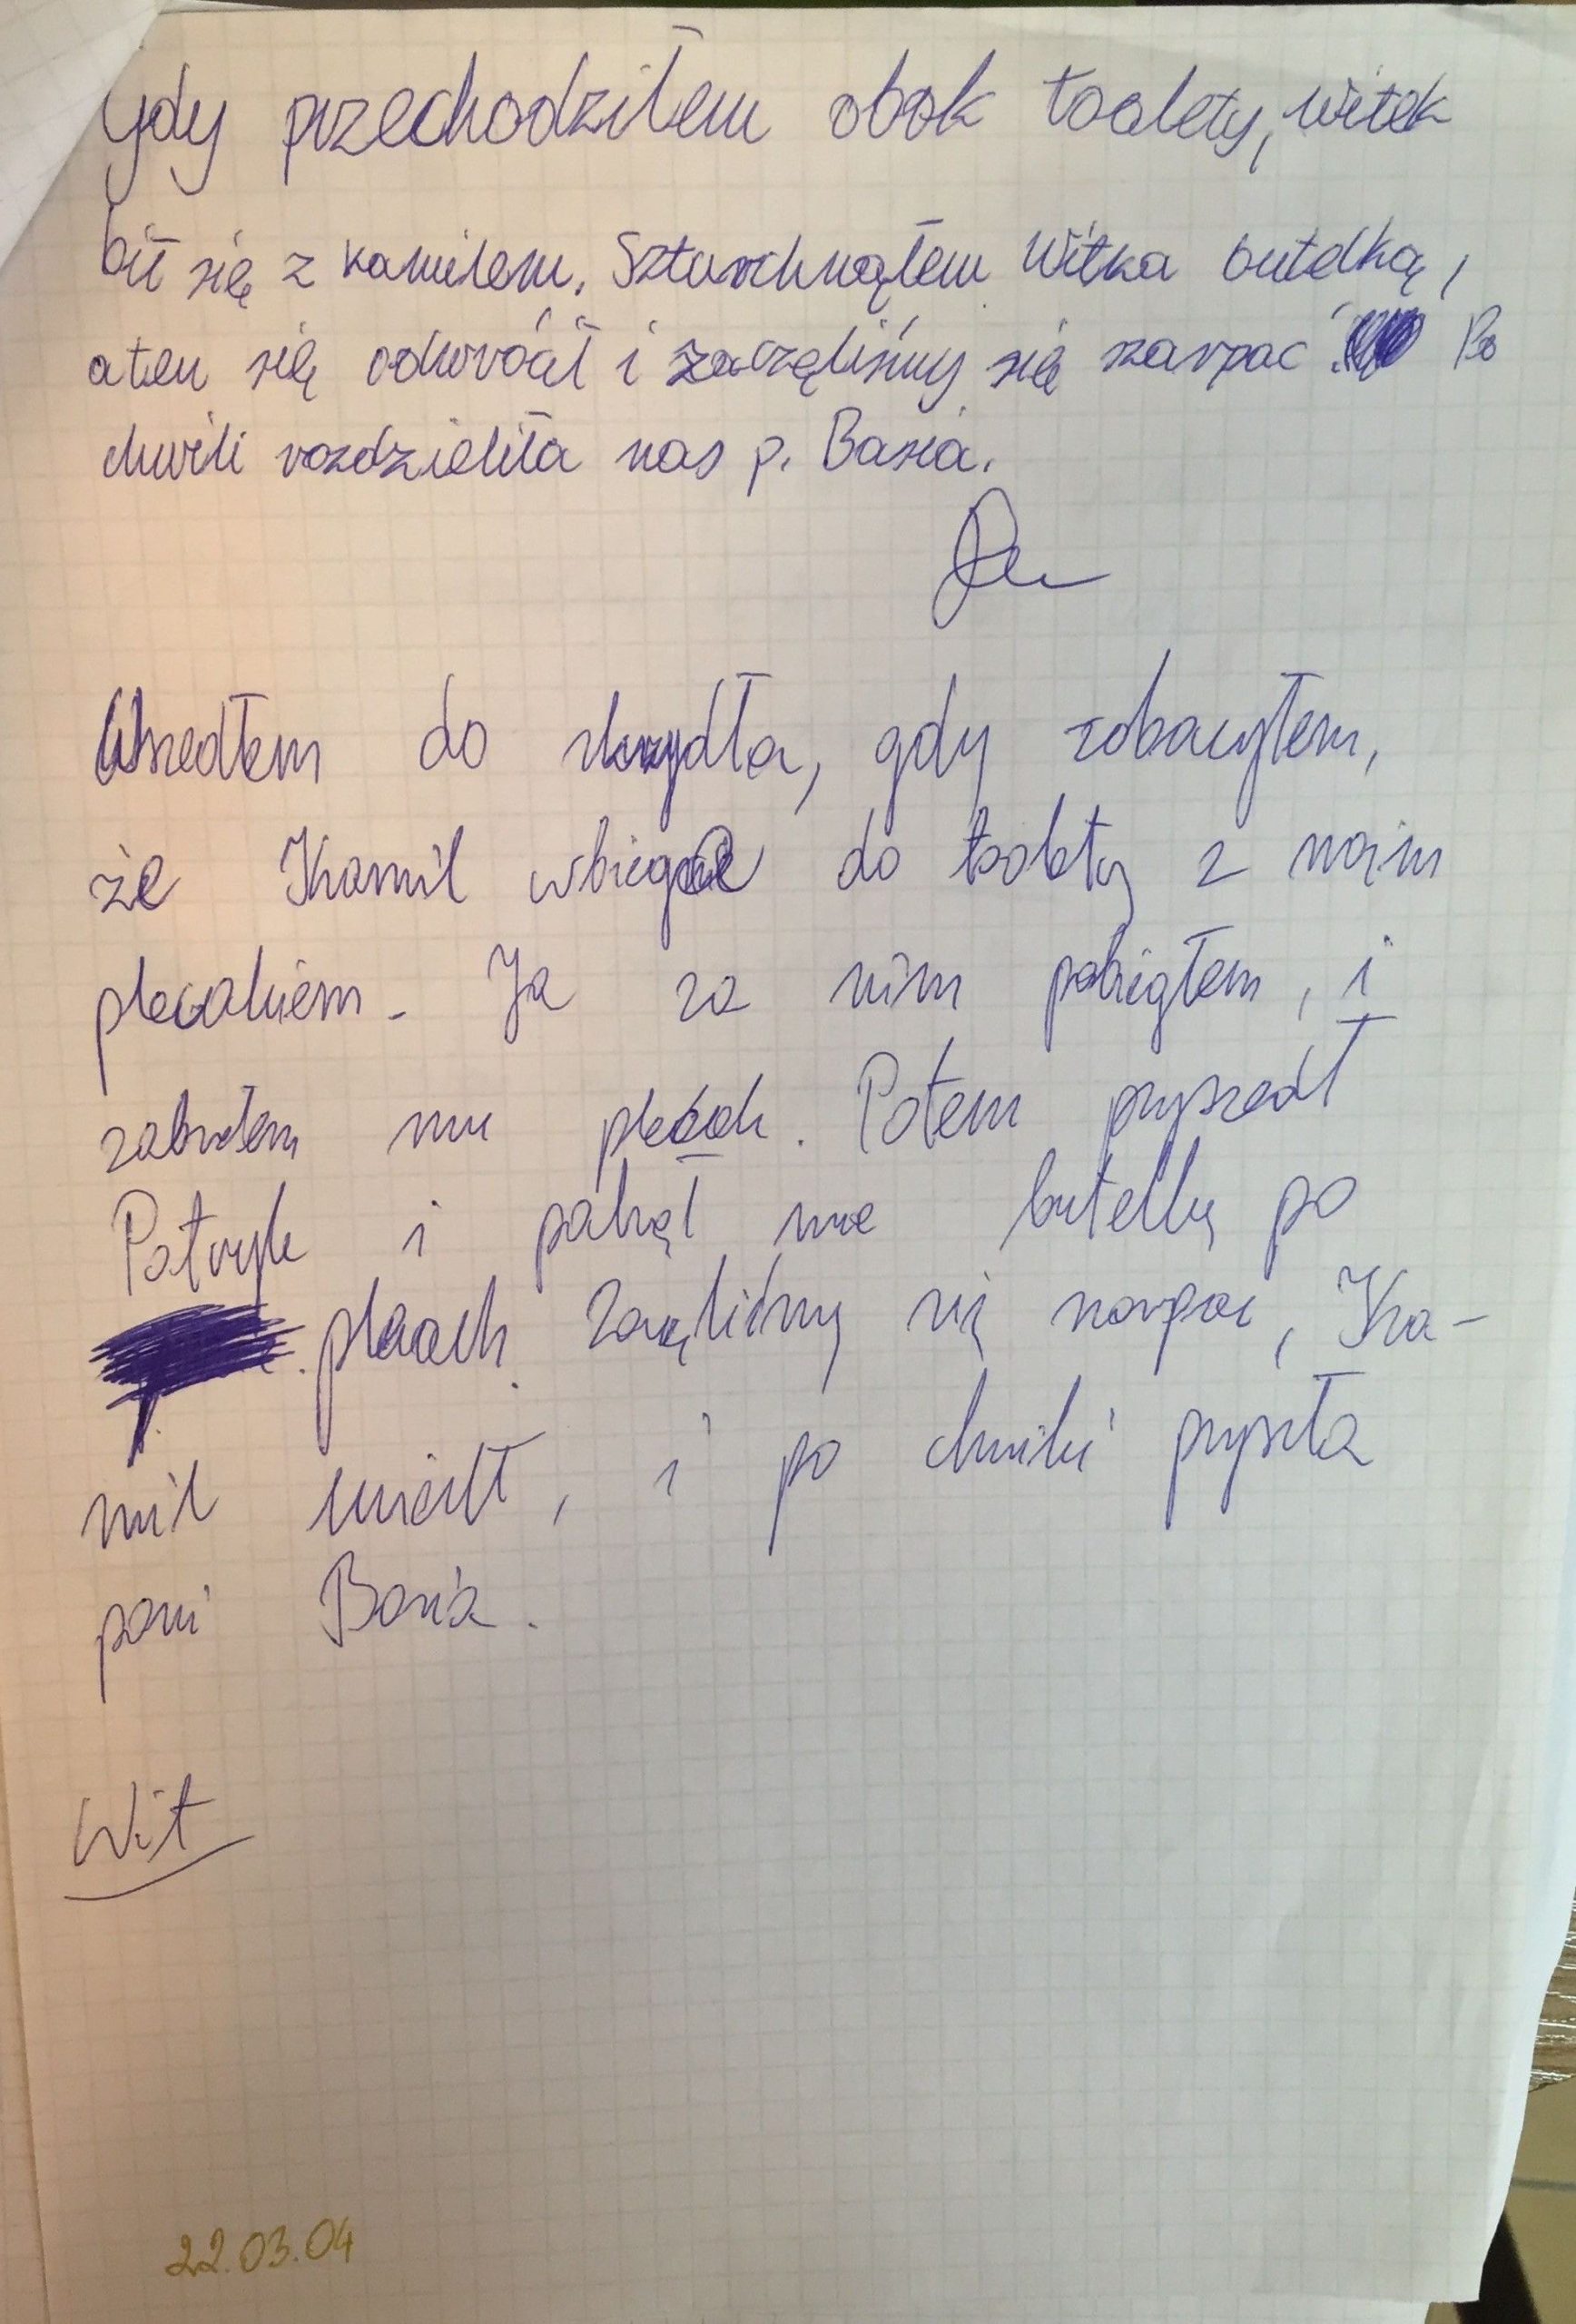 Gdy przechodziłem obok toalety, Witek
bił się z kamilem. Szturchnąłem Witka butelką,
a ten się odwrócił i zaczęliśmy się szarpać. Po
chwili rozdzieliła nas p. Basia.
Wszedłem do skrzydła, gdy zobaczyłem,
że Kamil wbiega do toalety z moim
plecakiem. Ja za nim pobiegłem, i
zabrałem mu plecak. Potem przyszedł
Patryk i palnął mnie butelką po
plecach. Zaczęliśmy się szarpać, Ka-
mil uciekł, i po chwili przyszła
pani Basia.
Wit
22.03.04